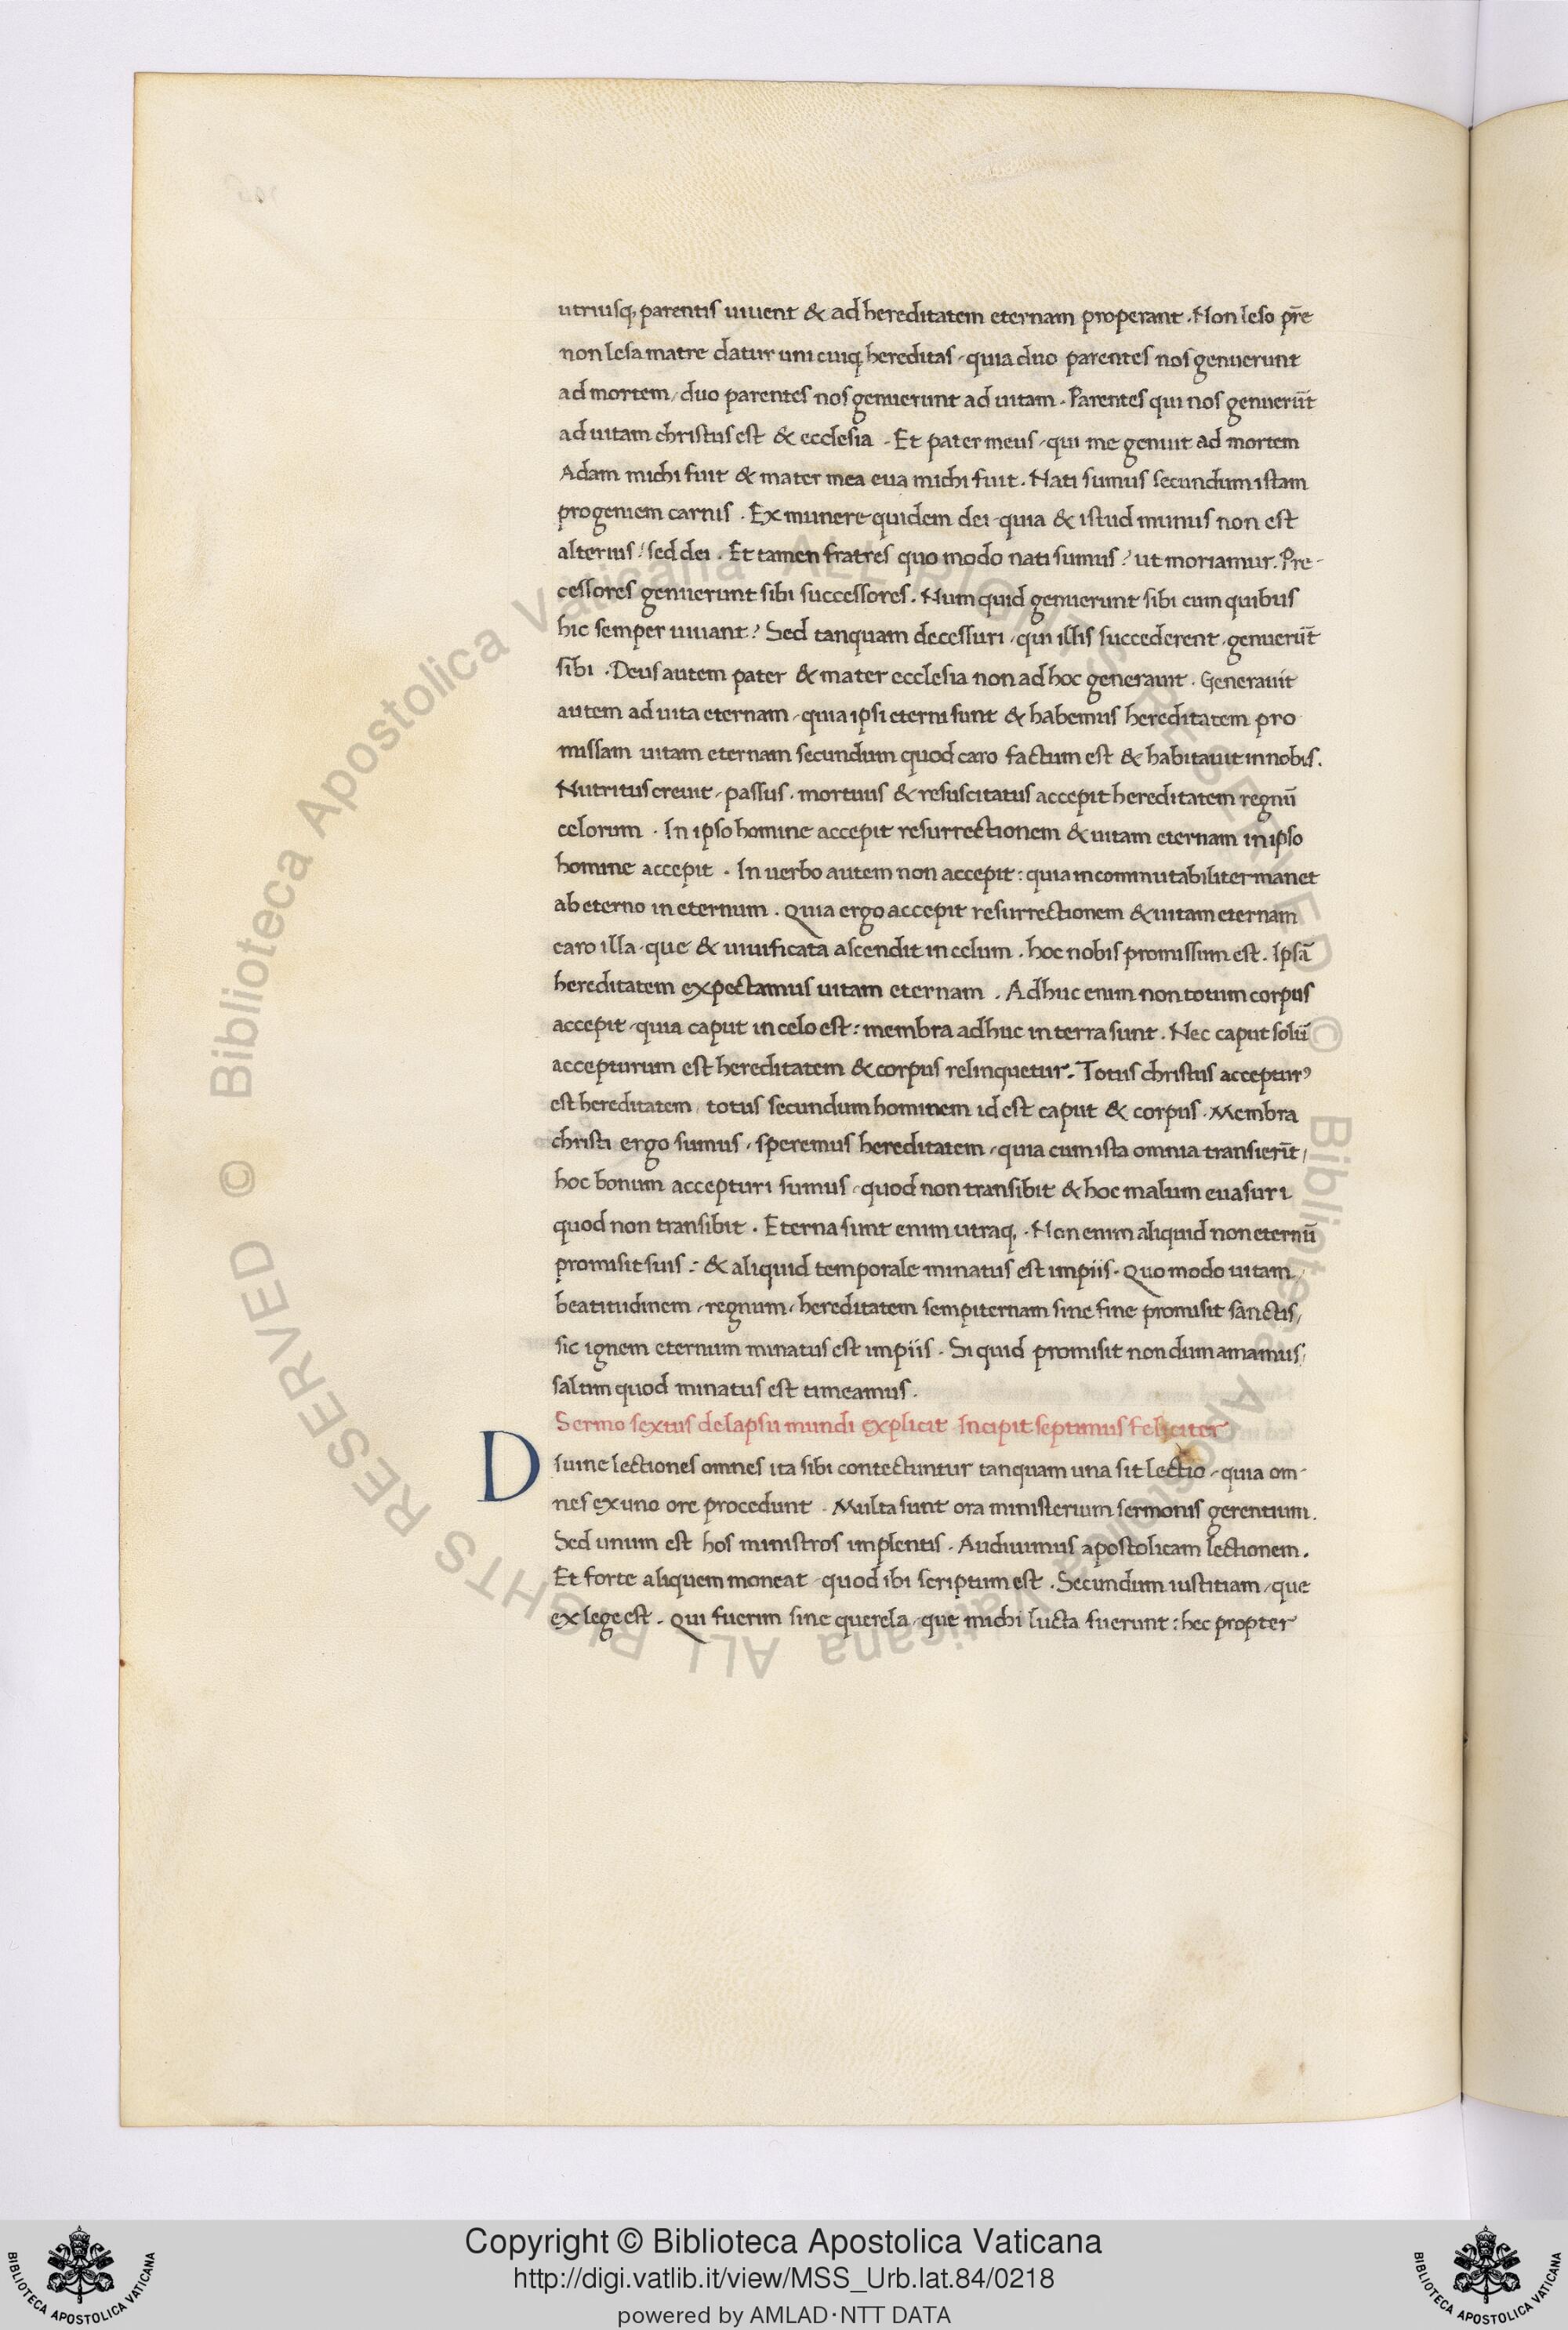 utriusq; parentis uiuent & ad hereditatem eternam properant. Non leso pr̄e
non lesa matre datur uni cuiq; hereditas, quia duo parentes nos genuerunt
ad mortem, duo parentes nos genuerunt ad uitam. Parentes qui nos genuerūt
ad uitam christus est & ecclesia. Et pater meus, qui me genuit ad mortem
Adam michi fuit & mater mea eua michi fuit. Nati sumus secundum istam
progeniem carnis. Ex munere quidem dei, quia & istud munus non est
alterius: sed dei. Et tamen fratres quo modo nati sumus? ut moriamur. Pre-
cessores genuerunt sibi successores. Num quid genuerunt sibi cum quibus
hic semper uiuant? Sed tanquam decessuri, qui illis succederent, genuerūt
sibi. Deus autem pater & mater ecclesia non ad hoc generauit. Generauit
autem ad uita eternam, quia ipsi eterni sunt & habemus hereditatem pro
missam uitam eternam secundum quod caro factum est & habitauit in nobis.
Nutritus creuit, passus, mortuus & resuscitatus accepit hereditatem regnū
celorum. In ipso homine accepit resurrectionem & uitam eternam in ipso
homine accepit. In uerbo autem non accepit: quia incommutabiliter manet
ab eterno in eternum. Quia ergo accepit resurrectionem & uitam eternam
caro illa, que & uiuificata ascendit in celum, hoc nobis promissum est. Ipsā
hereditatem expectamus uitam eternam. Adhuc enim non totum corpus
accepit, quia caput in celo est: membra adhuc in terra sunt. Nec caput solū
accepturum est hereditatem & corpus relinquetur. Totus christus acceptur⁹
est hereditatem, totus secundum hominem id est caput & corpus. Membra
christi ergo sumus, speremus hereditatem, quia cum ista omnia transierīt,
hoc bonum accepturi sumus, quod non transibit & hoc malum euasuri
quod non transibit. Eterna sunt enim utraq;. Non enim aliquid non eternū
promisit suis: & aliquid temporale minatus est impiis. Quo modo uitam,
beatitudinem, regnum, hereditatem sempiternam sine fine promisit sanctis,
sic ignem eternum minatus est impiis. Si quid promisit non dum amamus,
saltim quod minatus est timeamus.
Sermo sextus de lapsu mundi explicit Incipit septimus feliciter
D iuine lectiones omnes ita sibi contectuntur tanquam una sit lectio, quia om-
nes ex uno ore procedunt. Multa sunt ora ministerium sermonis gerentium.
Sed unum est hos ministros implentis. Audiuimus apostolicam lectionem.
Et forte aliquem moneat, quod ibi scriptum est. Secundum iustitiam, que
ex lege est. Qui fuerim sine querela, que michi lucta fuerunt: hec propter
© Biblioteca Apostolica Vaticana ALL RIGHTS RESERVED © Biblioteca Apostolica Vaticana ALL RIGHTS RESERVED
Copyright © Biblioteca Apostolica Vaticana
http://digi.vatlib.it/view/MSS_Urb.lat.84/0218
powered by AMLAD·NTT DATA
BIBLIOTECA APOSTOLICA VATICANA
BIBLIOTECA APOSTOLICA VATICANA